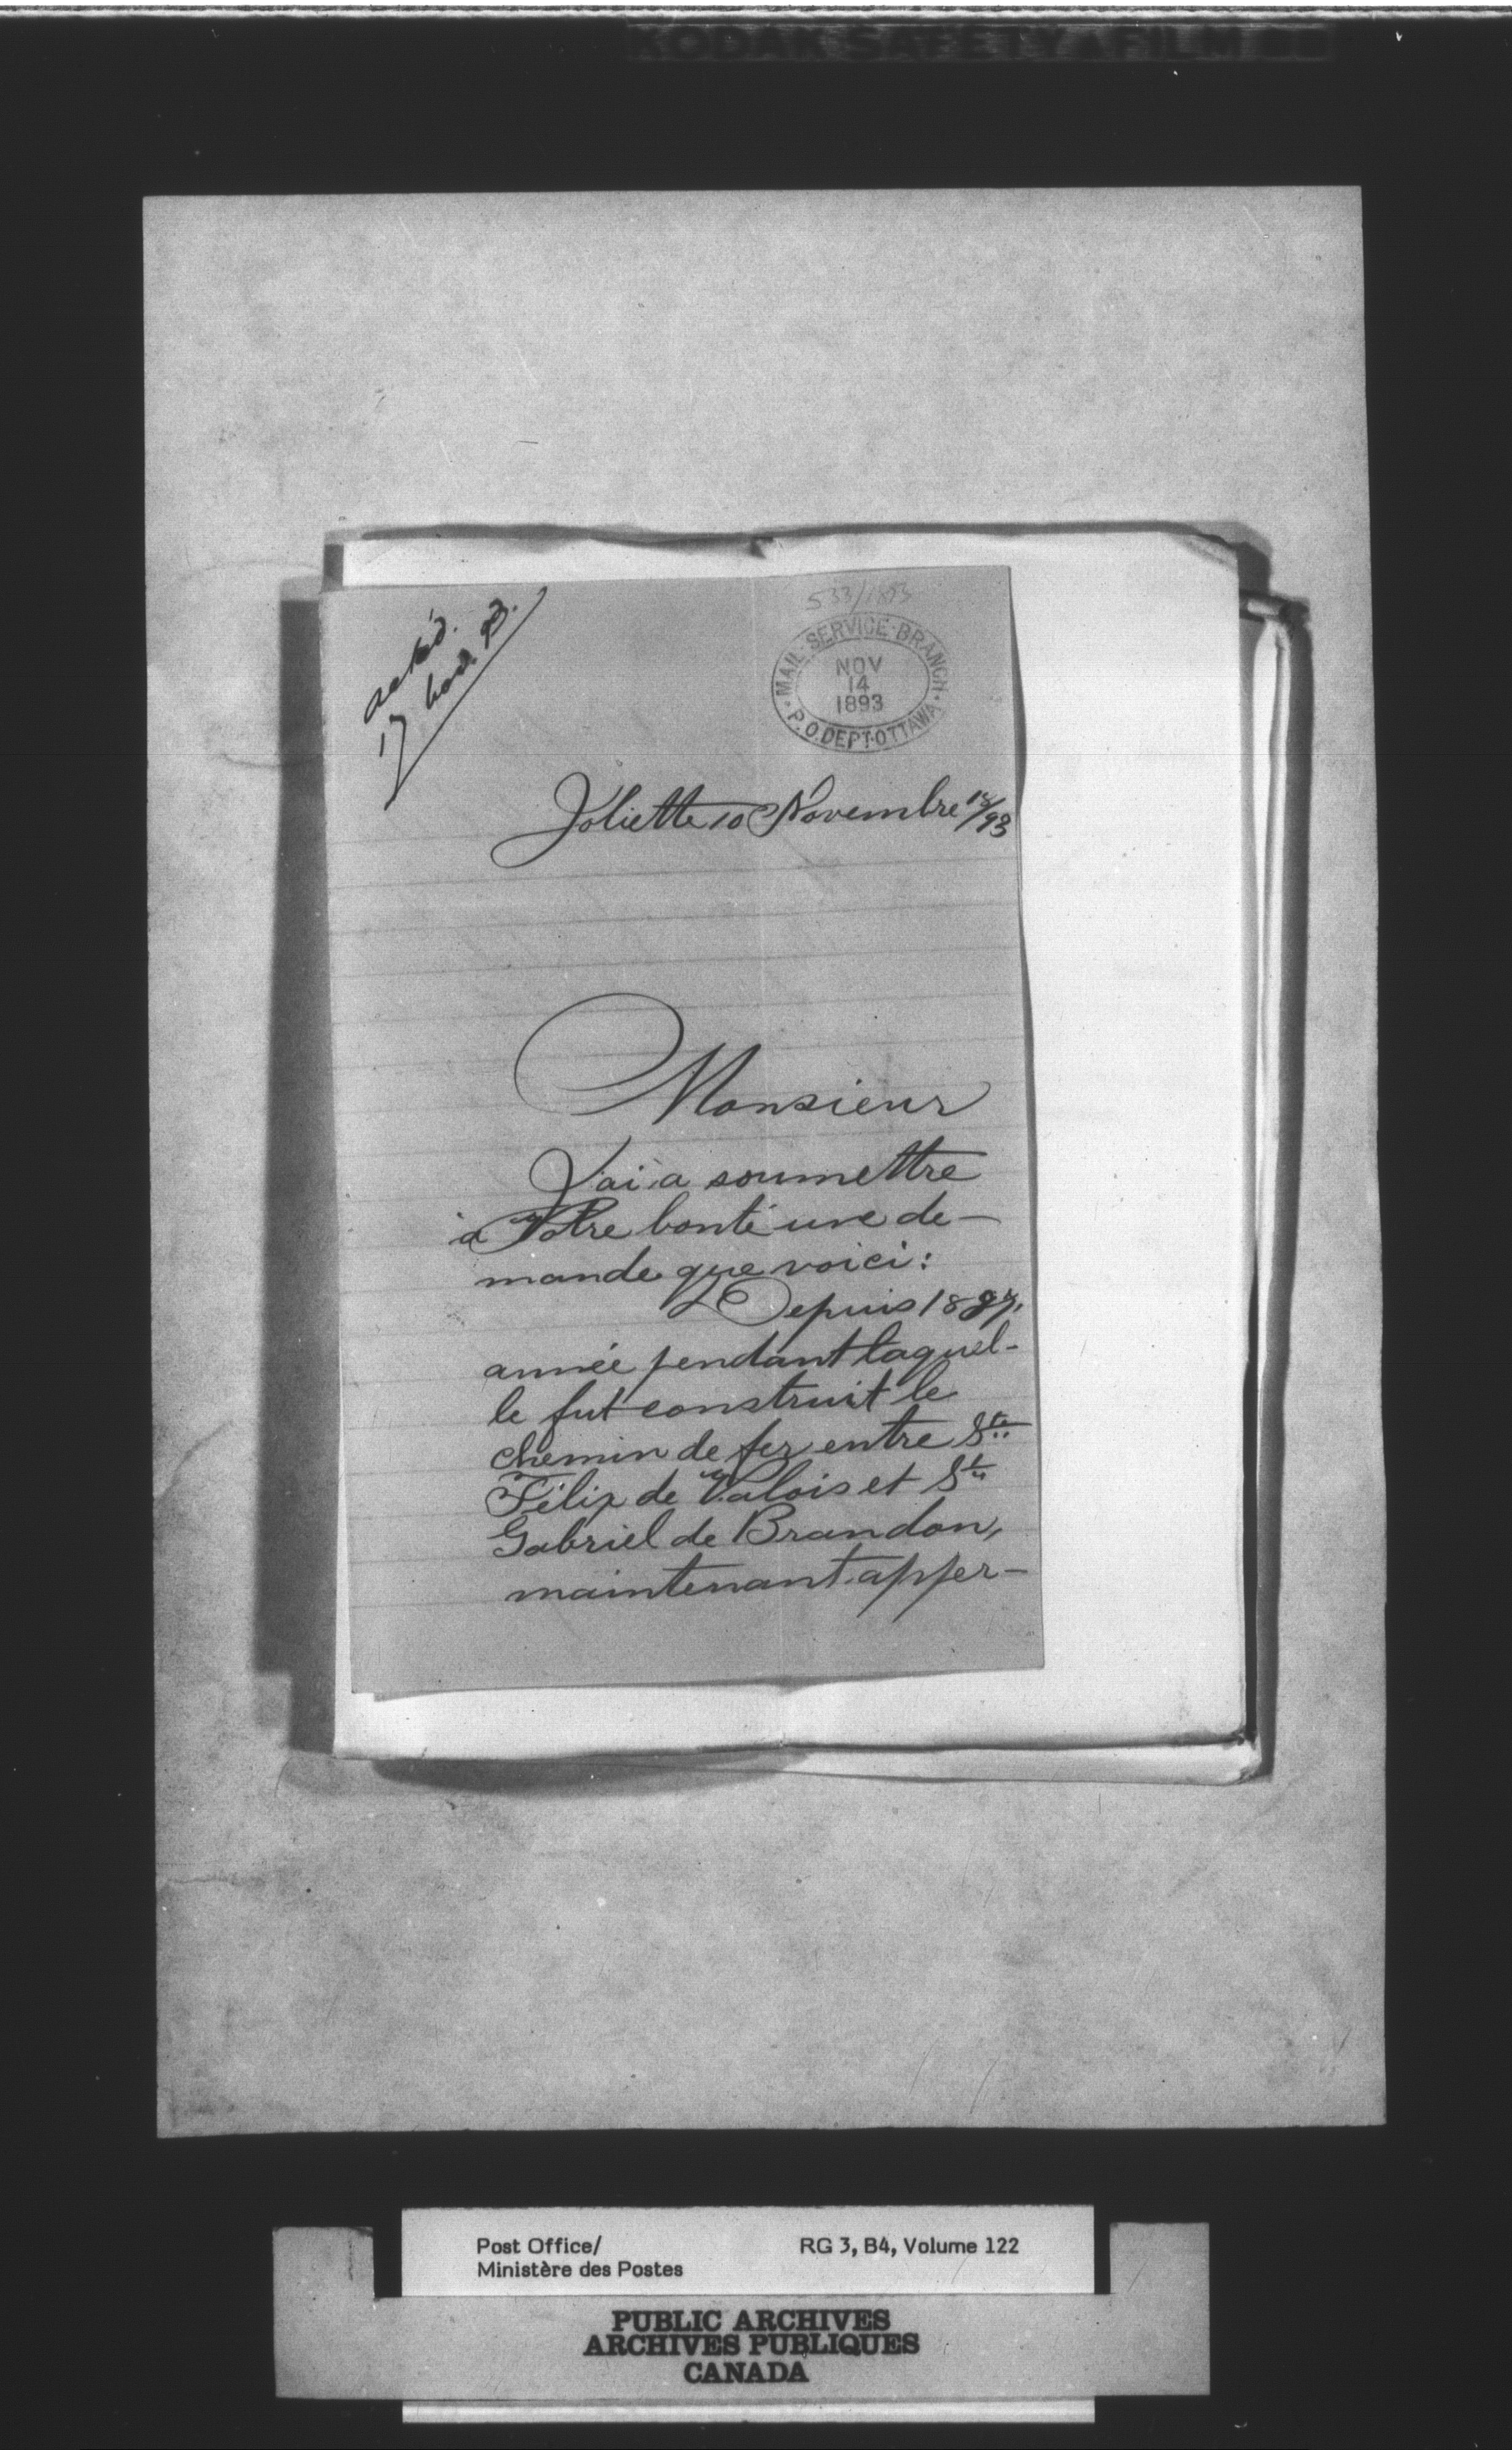 KODAK SAFETY FILM
533/1893
ackd.
17 Nov. 93.
MAIL-SERVICE-BRANCH
NOV
14
1893
P.O.DEPT.OTTAWA
Joliette 10 Novembre 18/93
Monsieur
J'ai a soumettre
à Votre bonté une de-
mande que voici:
Depuis 1887,
année pendant laquel-
le fut construit le
chemin de fer entre Ste
Félix de Valois et St
Gabriel de Brandon,
maintenant apper-
Post Office/
Ministère des Postes
RG 3, B4, Volume 122
PUBLIC ARCHIVES
ARCHIVES PUBLIQUES
CANADA